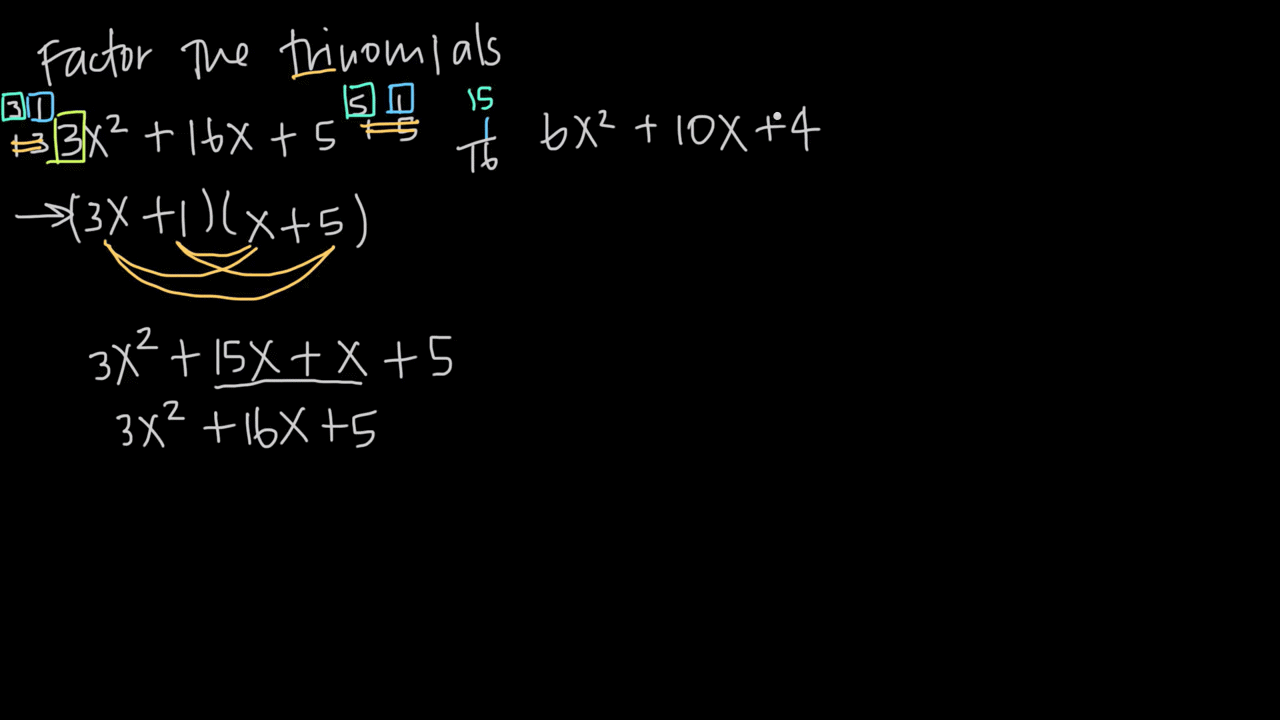 Factor The trinomials
3 1 5 1 15
1 3 3x² + 16x + 5 1 5 1 6x² + 10x + 4
16
→ (3x + 1)(x + 5)
3x² + 15x + x + 5
3x² + 16x + 5